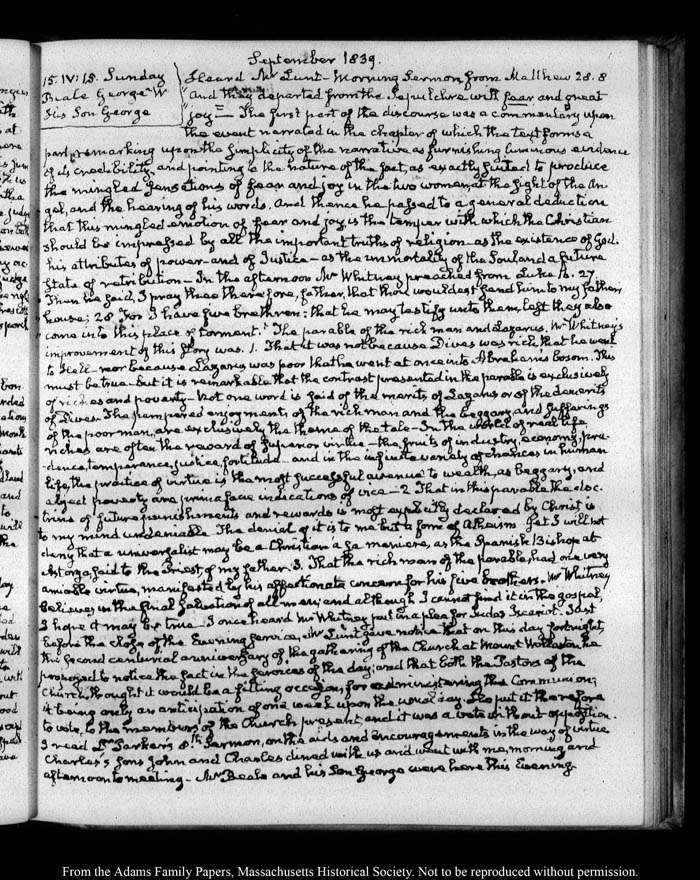 September 1839.
15. IV: 15. Sunday
Beale George W
His Son George
Heard Mr Lunt - Morning Sermon from Matthew 28. 8
And they departed from the Sepulchre with fear and great
joy — The first part of the discourse was a commentary upon
the event narrated in the chapter of which the text forms a
part, remarking upon the simplicity of the narrative as furnishing luminous evidence
of its credibility, and pointing to the nature of the fact, as exactly fitted to produce
the mingled sensations of fear and joy in the two women, at the sight of the An
gel, and the hearing of his words. And thence he passed to a general deduction
that this mingled emotion of fear and joy, is the temper with which the Christian
should be impressed by all the important truths of religion - as the existence of God.
his attributes of power - and of Justice - as the immortality of the Soul and a future
State of retribution - In the afternoon Mr Whitney preached from Luke 16. 27.
Then he said, I pray thee therefore, father, that thou wouldest send him to my father's
house; 28 For I have five brethren: that he may testify unto them, lest they also
come into this place of torment. The parable of the rich man and Lazarus. Mr Whitney's
improvement of this story was. 1. That it was not because Dives was rich that he went
to Hell - nor because Lazarus was poor that he went at once into Abraham's bosom. This
must be true - but it is remarkable that the contrast presented in the parable is exclusively
of riches and poverty - Not one word is said of the merits of Lazarus or of the demerits
of Dives. The pampered enjoyments of the rich man and the beggary and sufferings
of the poor man, are exclusively the theme of the tale - In the world of real life,
riches are often the reward of superior virtue - the fruits of industry, economy, pru-
dence, temperance, justice, fortitude - and in the infinite variety of chances in human
life, the practice of virtue is the most successful avenue to wealth, as beggary, and
abject poverty are prima facie indications of vice - 2 That in this parable the doc-
trine of future punishments and rewards is most explicitly declared by Christ is
to my mind undeniable. The denial of it is to me but a form of Atheism Yet I will not
deny that a universalist may be a Christian à sa maniere, as the Spanish Bishop at
Astorga said to the Priest, of my father. 3. That the rich man of the parable, had one very
amiable virtue, manifested by his affectionate concern for his five brothers. Mr Whitney
believes in the final salvation of all men; and although I cannot find it in the gospel,
I hope it may be true - I once heard Mr Whitney put in a plea for Judas Iscariot. Just
before the close of the Evening service, Mr Lunt gave notice that on this day fortnight,
the second centurial anniversary of the gathering of the Church at Mount Wollaston, he
proposed to notice the fact in the services of the day; and that both the Pastors of the
Church, thought it would be a fitting occasion for administering the Communion;
it being only an anticipation of one week upon the usual day. He put it therefore
to vote, to the members of the Church present, and it was a vote without opposition.
I read Dr Barker's 8th Sermon, on the aids and encouragements in the way of virtue
Charles's sons John and Charles dined with us and went with me, morning and
afternoon to meeting - Mr Beale and his Son George were here this Evening.
From the Adams Family Papers, Massachusetts Historical Society. Not to be reproduced without permission.